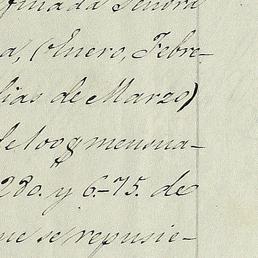 finada Señora
a, (Enero, Febre-
dias de Marzo)
de 100 g mensua-
280. y 6-75. de
ue se repusie-